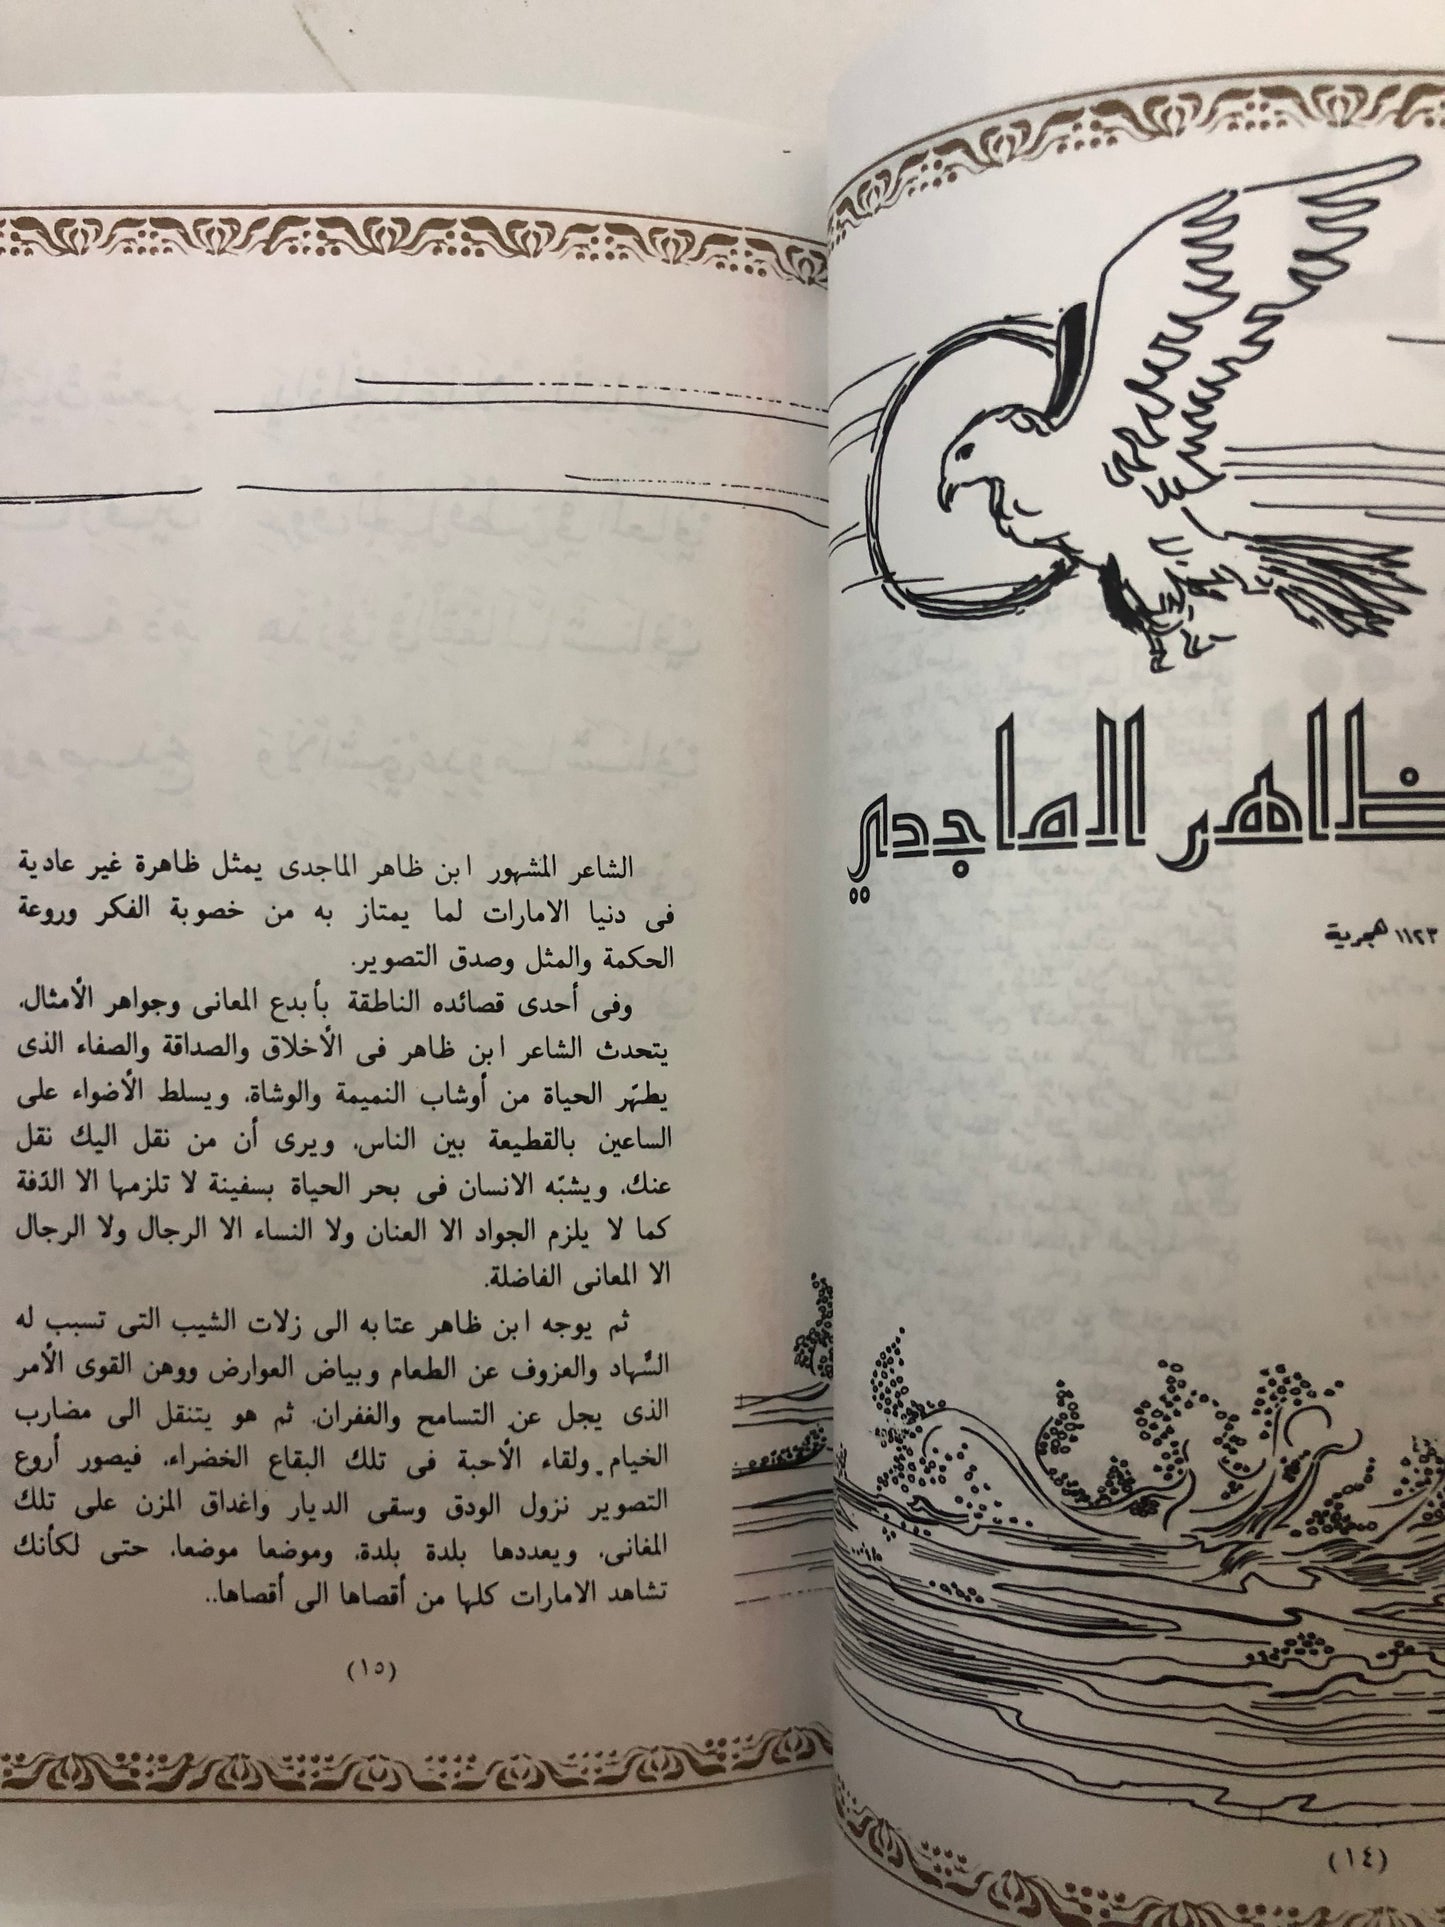 ظاهر الماجدي
١١٢٣ هجرية
(١٤)
الشاعر المشهور ابن ظاهر الماجدى يمثل ظاهرة غير عادية
فى دنيا الامارات لما يمتاز به من خصوبة الفكر وروعة
الحكمة والمثل وصدق التصوير.
وفى أحدى قصائده الناطقة بأبدع المعانى وجواهر الأمثال.
يتحدث الشاعر ابن ظاهر فى الأخلاق والصداقة والصفاء الذى
يطهّر الحياة من أوشاب النميمة والوشاة. ويسلط الأضواء على
الساعين بالقطيعة بين الناس. ويرى أن من نقل اليك نقل
عنك. ويشبّه الانسان فى بحر الحياة بسفينة لا تلزمها الا الدّفة
كما لا يلزم الجواد الا العنان ولا النساء الا الرجال ولا الرجال
الا المعانى الفاضلة.
ثم يوجه ابن ظاهر عتابه الى زلات الشيب التى تسبب له
السُّهاد والعزوف عن الطعام وبياض العوارض ووهن القوى الأمر
الذى يجل عن التسامح والغفران. ثم هو يتنقل الى مضارب
الخيام. ولقاء الأحبة فى تلك البقاع الخضراء. فيصور أروع
التصوير نزول الودق وسقى الديار واغداق المزن على تلك
المغانى. ويعددها بلدة بلدة. وموضعا موضعا. حتى لكأنك
تشاهد الامارات كلها من أقصاها الى أقصاها..
(١٥)